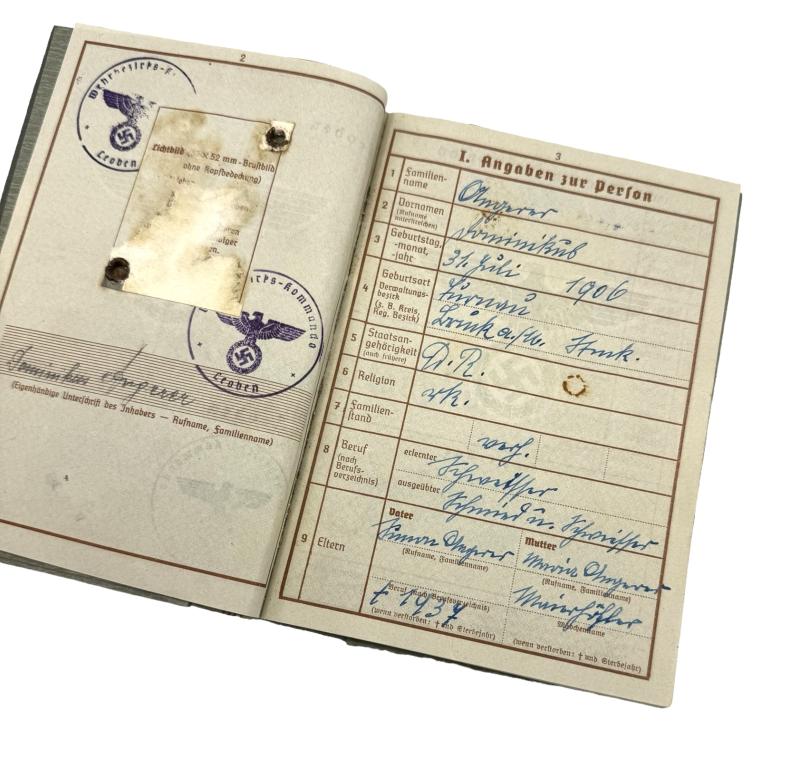 2
Wehrbezirks-K
Leoben
Lichtbild 52 mm - Brustbild
ohne Kopfbedeckung)
irks-Kommando
Leoben
Dominikus Angerer
(Eigenhändige Unterschrift des Inhabers — Rufname, Familienname)
4
3
I. Angaben zur Person
1 Familien-
name
Angerer
2 Vornamen
(Rufname
unterstreichen)
Dominikus
3 Geburtstag,
-monat,
-jahr
31. Juli 1906
4 Geburtsort
Verwaltungs-
bezirk
(z. B. Kreis,
Reg. Bezirk)
Turnau
Bruck a./M.
5 Staatsan-
gehörigkeit
(auch frühere)
D. R.
6 Religion
rk.
7 Familien-
stand
verh.
8 Beruf
(nach
Berufs-
verzeichnis)
erlernter
Schweisser
ausgeübter
Schmied u. Schweisser
9 Eltern
Vater
Simon Angerer
(Rufname, Familienname)
(Beruf nach Berufsverzeichnis)
† 1937
(wenn verstorben: † und Sterbejahr)
Mutter
Maria Angerer
(Rufname, Familienname)
Mädchenname
(wenn verstorben: † und Sterbejahr)